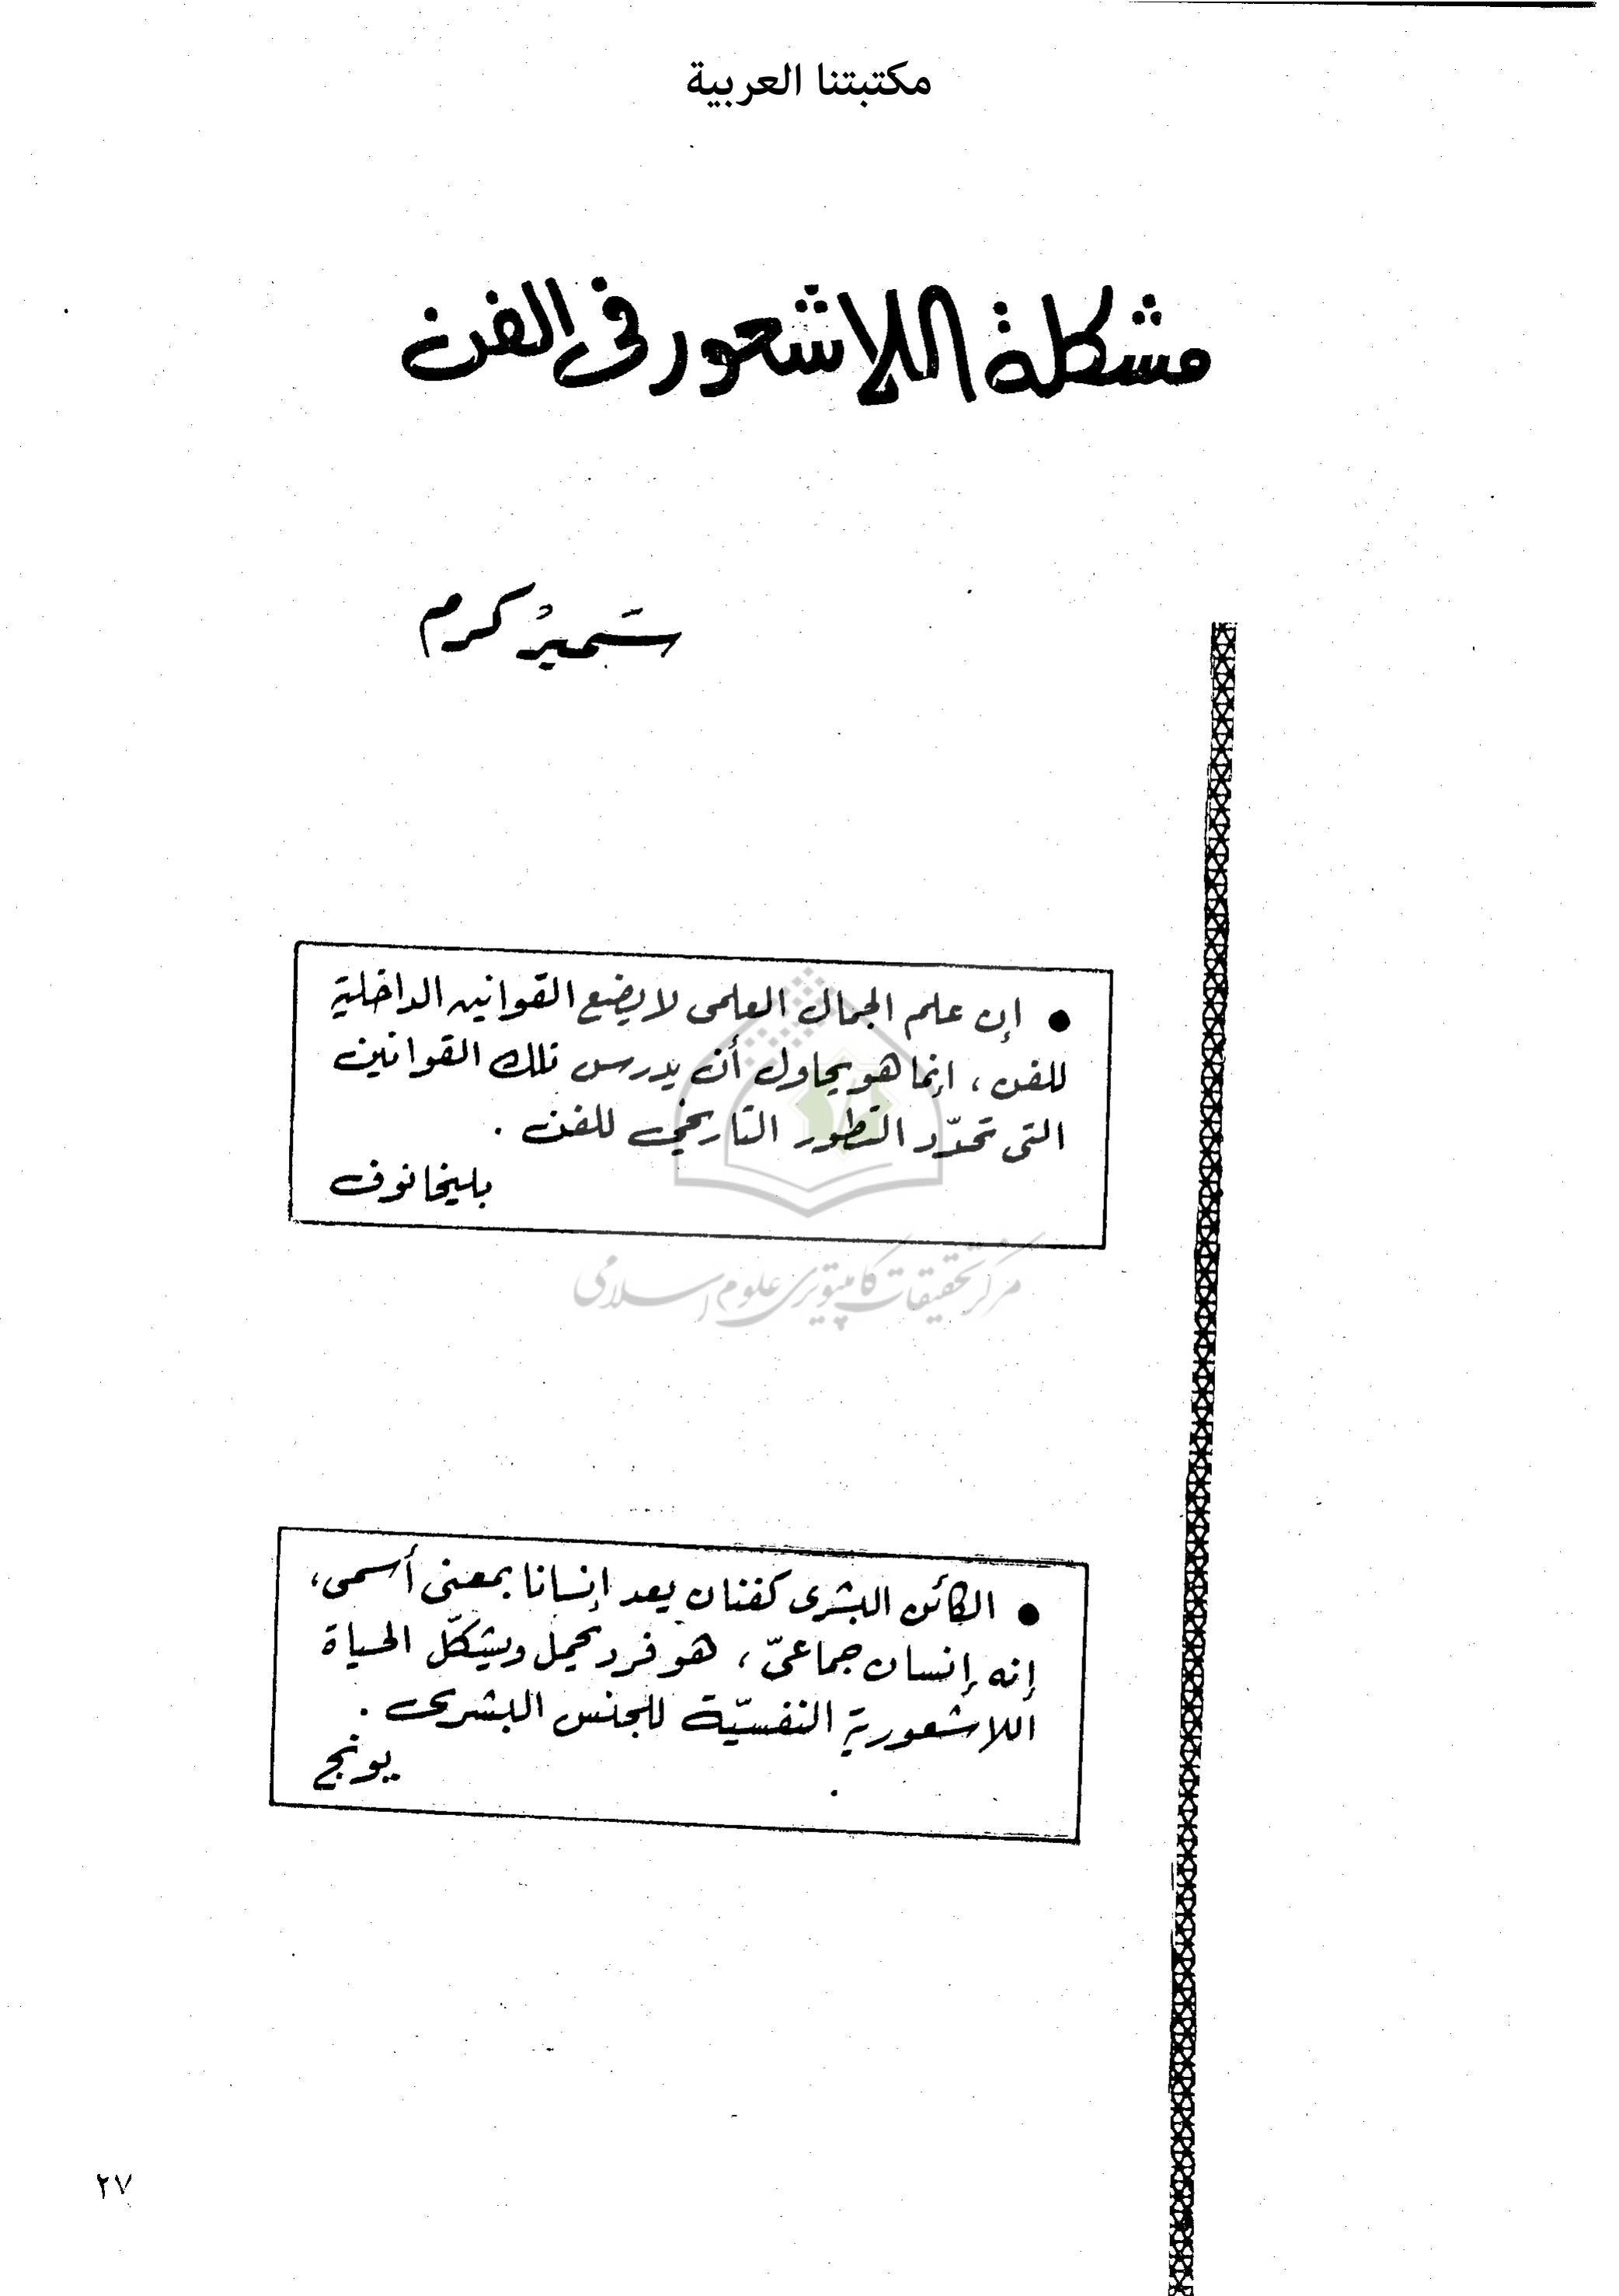 مكتبتنا العربية
مشكلة اللاشعور فى الفن
سَميرُ كرم
● إن علم الجمال العلمى لا يضع القوانين الداخلية
للفن ، إنما هو يحاول أن يدرس تلك القوانين
التى تحدّد التطور التاريخى للفن .
بليخانوف
مركز تحقيقات كامپيوترى علوم اسلامى
● الكائن البشرى كفنان يعد إنسانا بمعنى أسمى ،
إنه إنسان جماعىّ ، هو فرد يحمل ويشكّل الحياة
اللاشعورية النفسيّة للجنس البشرى .
يونج
٢٧